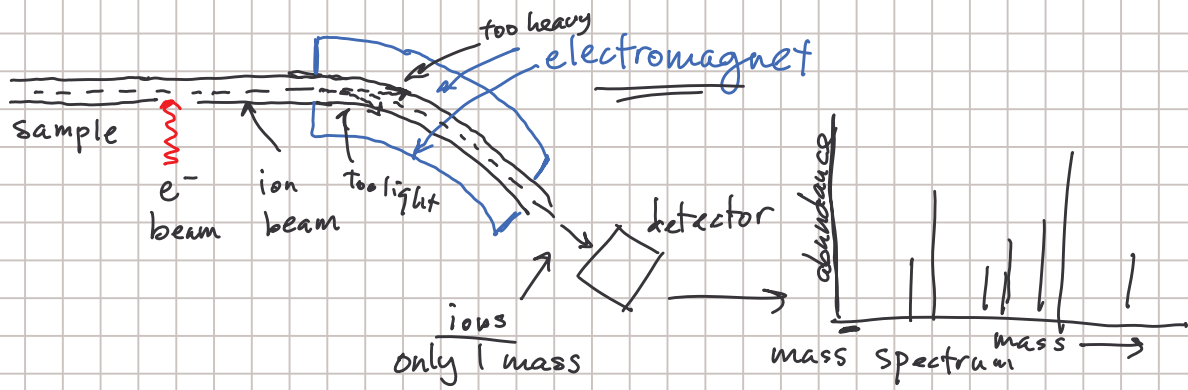 too heavy
electromagnet
sample
e⁻
beam
ion
beam
too light
detector
ions
only 1 mass
abundance
mass
mass spectrum